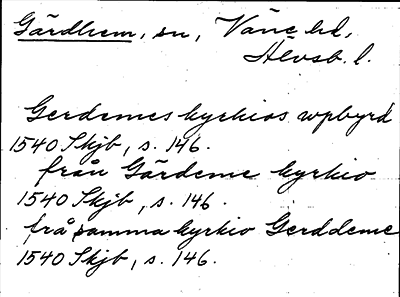 Gärdhem, sn, Väne hd,
Älvsb. l.
Gerdemes kyrkios wpbyrd
1540 Skjb, s. 146.
från Gärdeme kyrkio
1540 Skjb, s. 146.
frå samma kyrkio Gerddeme
1540 Skjb, s. 146.